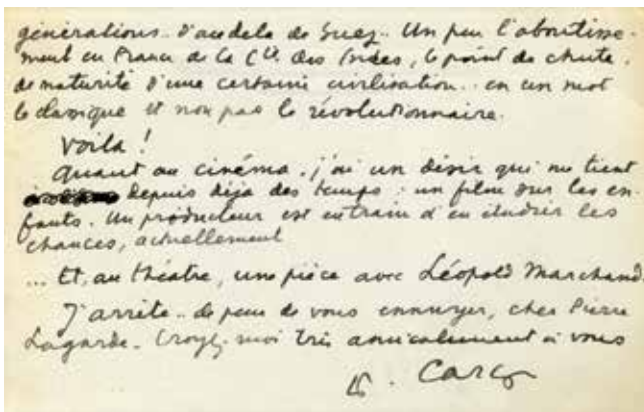 générations.. D'au dela de Suez.. Un peu l'aboutisse-
ment en France de la Cie des Indes, le point de chute,
de maturité d'une certaine civilisation.. en un mot
le classique et non pas le révolutionnaire.
Voilà !
Quant au cinéma, j'ai un désir qui me tient
depuis déja des temps : un film sur les en-
fants. Un producteur est en train d'en étudier les
chances, actuellement
... Et, au théâtre, une pièce avec Léopold Marchand.
J'arrête.. de peur de vous ennuyer, cher Pierre
Lagarde. Croyez-moi très amicalement à vous
Carco